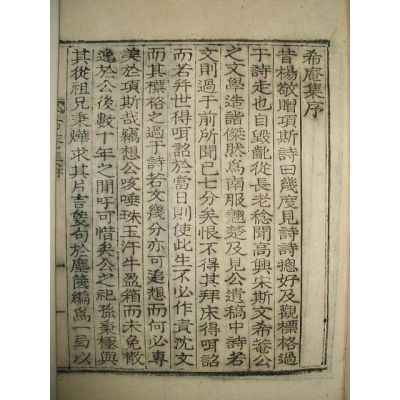 希庵集序
昔楊敬贈項斯詩曰幾度見詩詩摠好及觀標格過
于詩走也自毀齔從長老稔聞高興宋斯文希菴公
之文學造詣傑然爲南服翹楚及見公遺稿中詩若
文則過于前所聞已七分矣恨不得其拜床得咡詔
而若幷世得咡詔於當日則使此生不必作責沈文
而其標格之過于詩若文幾分亦可追想而何必專
美於項斯哉竊想公咳唾珠玉汗牛盈箱而未免散
逸於公後數十年之間吁可惜矣公之祀孫秉極與
其從祖兄秉燁求其片吉隻句於塵篋編爲一弓以